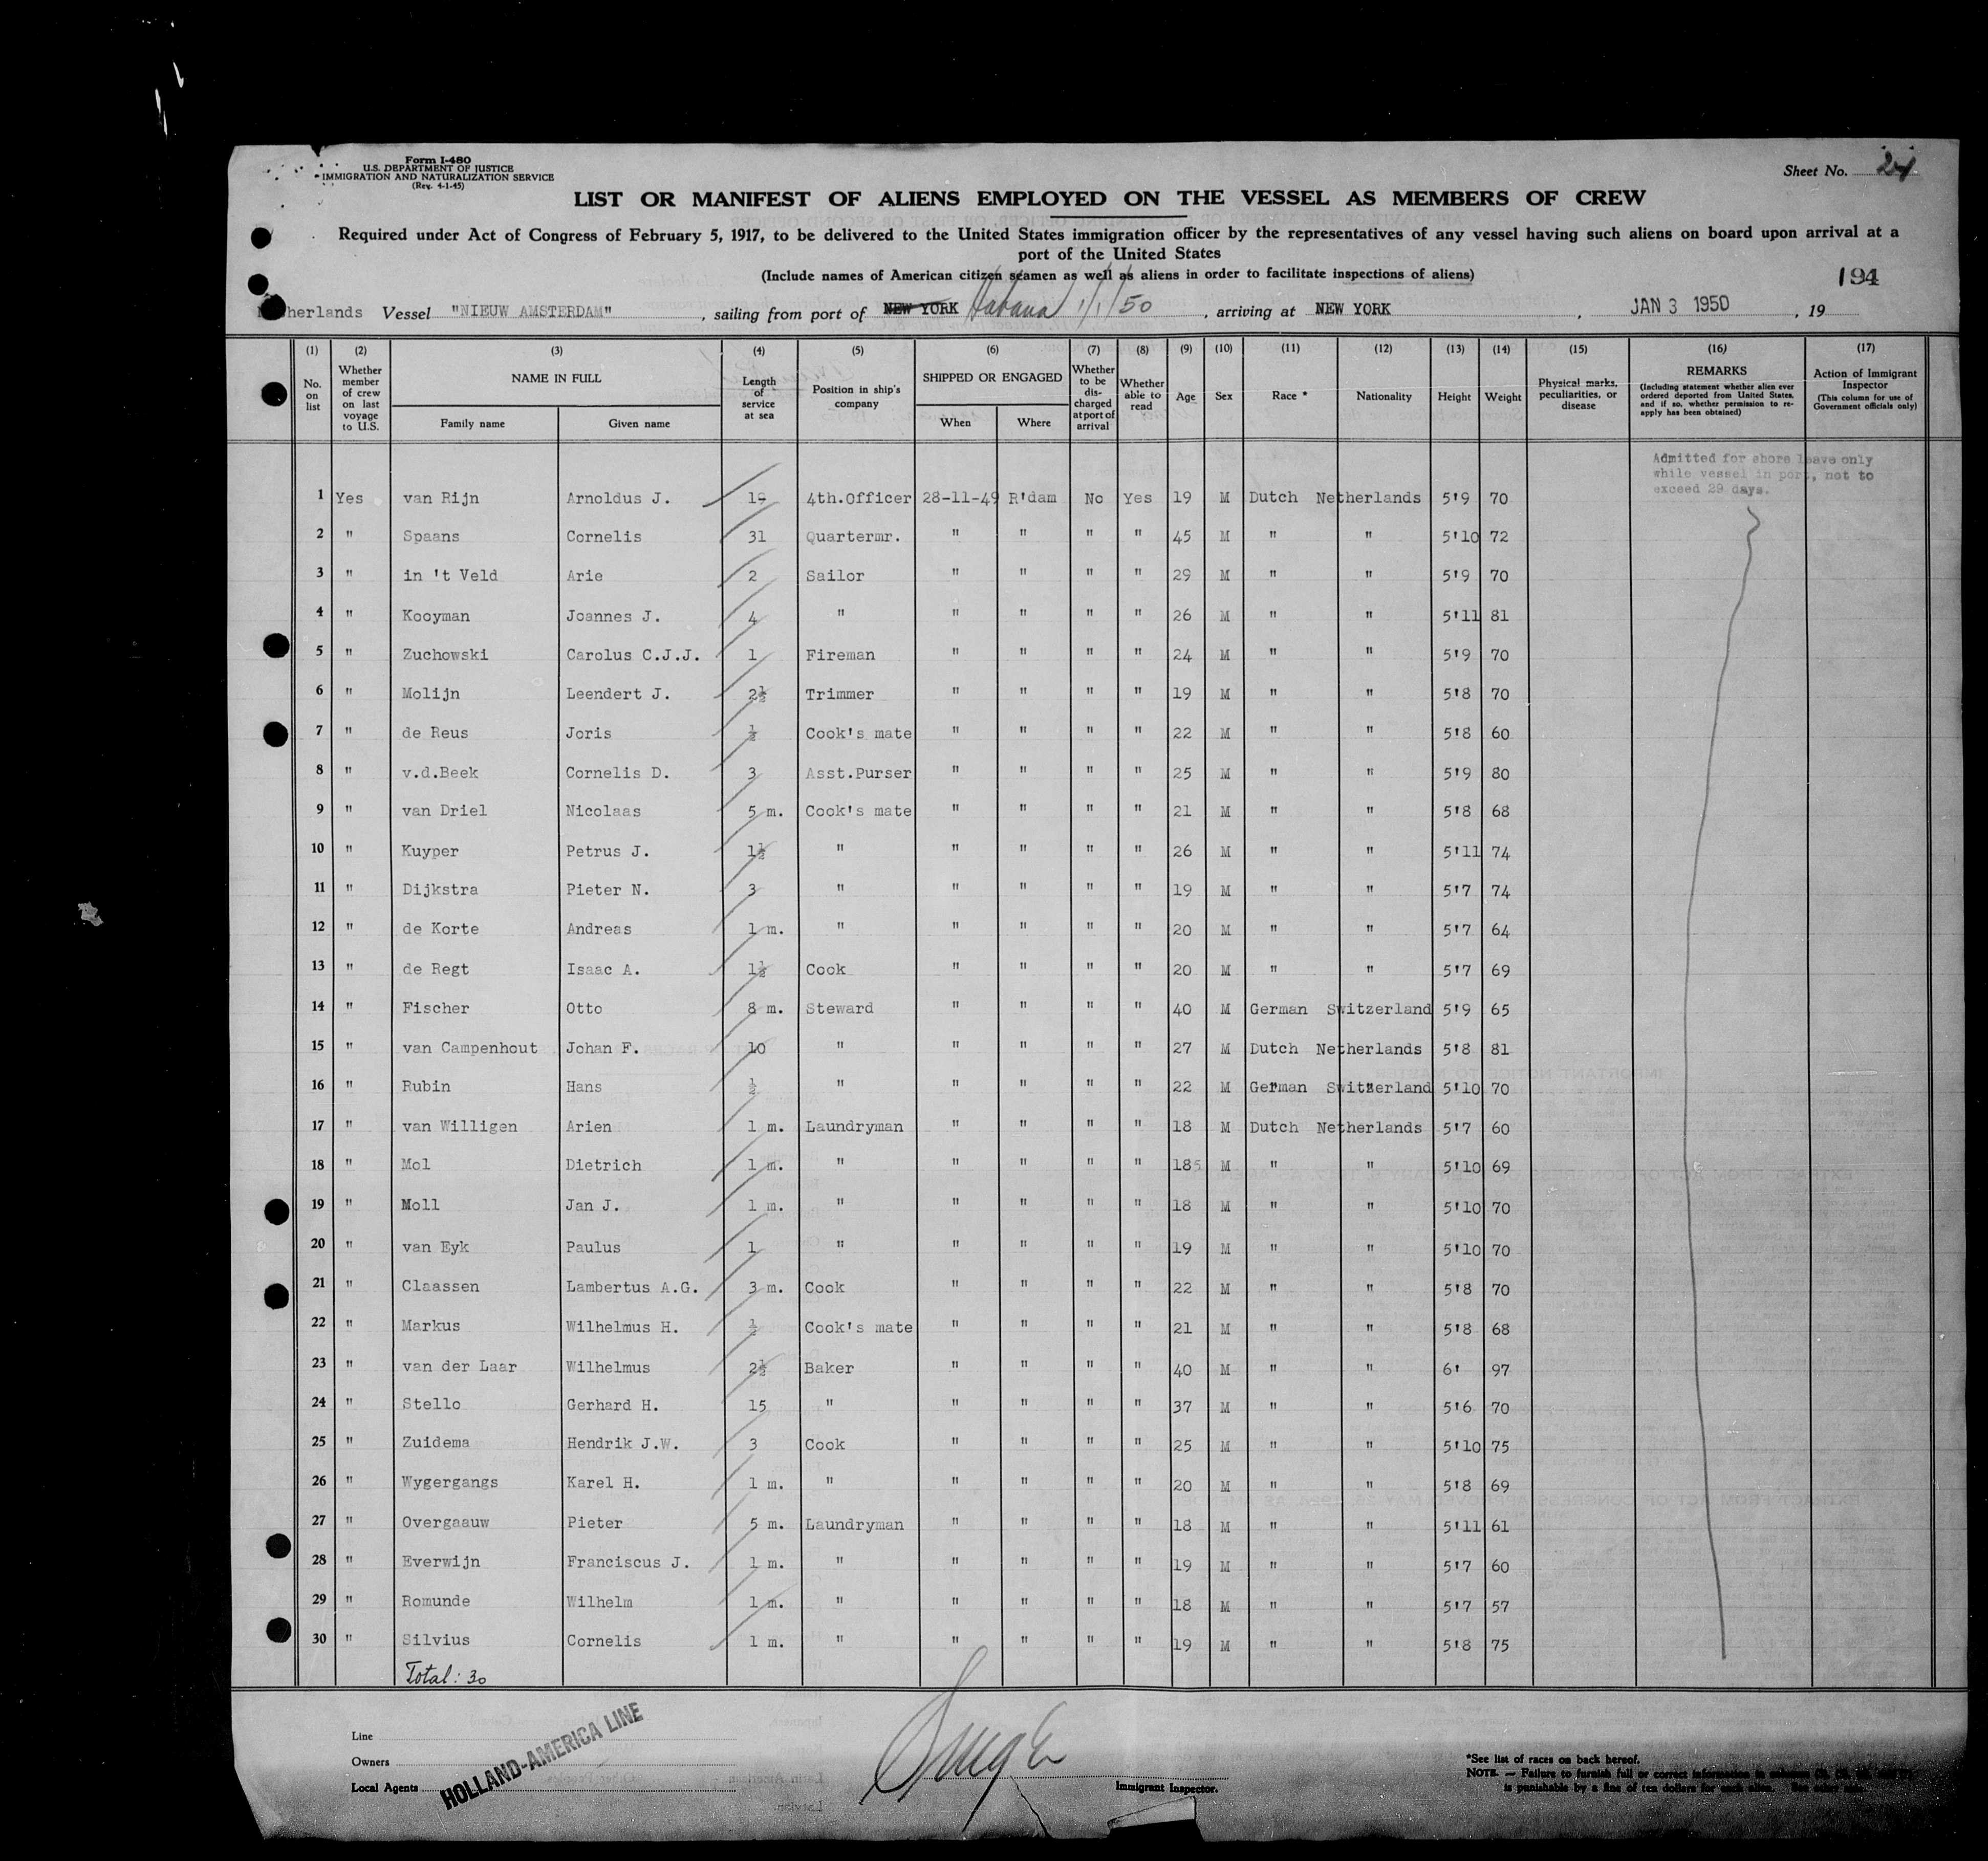 Form I-480
U.S. DEPARTMENT OF JUSTICE
IMMIGRATION AND NATURALIZATION SERVICE
(Rev. 4-1-45)
Sheet No. 24
LIST OR MANIFEST OF ALIENS EMPLOYED ON THE VESSEL AS MEMBERS OF CREW
Required under Act of Congress of February 5, 1917, to be delivered to the United States immigration officer by the representatives of any vessel having such aliens on board upon arrival at a
port of the United States
(Include names of American citizen seamen as well as aliens in order to facilitate inspections of aliens)
194
herlands Vessel "NIEUW AMSTERDAM", sailing from port of NEW YORK Habana 1/1/50, arriving at NEW YORK, JAN 3 1950, 19
(1) (2) (3) (4) (5) (6) (7) (8) (9) (10) (11) (12) (13) (14) (15) (16) (17)
No. on list
Whether member of crew on last voyage to U.S.
NAME IN FULL
Family name
Given name
Length of service at sea
Position in ship's company
SHIPPED OR ENGAGED
When
Where
Whether to be discharged at port of arrival
Whether able to read
Age
Sex
Race *
Nationality
Height
Weight
Physical marks, peculiarities, or disease
REMARKS
(Including statement whether alien ever ordered deported from United States, and if so, whether permission to re-apply has been obtained)
Action of Immigrant Inspector
(This column for use of Government officials only)
Admitted for shore leave only
while vessel in port, not to
exceed 29 days.
1 Yes van Rijn Arnoldus J. 19 4th.Officer 28-11-49 R'dam No Yes 19 M Dutch Netherlands 5'9 70
2 " Spaans Cornelis 31 Quartermr. " " " " 45 M " " 5'10 72
3 " in 't Veld Arie 2 Sailor " " " " 29 M " " 5'9 70
4 " Kooyman Joannes J. 4 " " " " " 26 M " " 5'11 81
5 " Zuchowski Carolus C.J.J. 1 Fireman " " " " 24 M " " 5'9 70
6 " Molijn Leendert J. 2½ Trimmer " " " " 19 M " " 5'8 70
7 " de Reus Joris ½ Cook's mate " " " " 22 M " " 5'8 60
8 " v.d.Beek Cornelis D. 3 Asst.Purser " " " " 25 M " " 5'9 80
9 " van Driel Nicolaas 5 m. Cook's mate " " " " 21 M " " 5'8 68
10 " Kuyper Petrus J. 1½ " " " " " 26 M " " 5'11 74
11 " Dijkstra Pieter N. 3 " " " " " 19 M " " 5'7 74
12 " de Korte Andreas 1 m. " " " " " 20 M " " 5'7 64
13 " de Regt Isaac A. 1½ Cook " " " " 20 M " " 5'7 69
14 " Fischer Otto 8 m. Steward " " " " 40 M German Switzerland 5'9 65
15 " van Campenhout Johan F. 10 " " " " " 27 M Dutch Netherlands 5'8 81
16 " Rubin Hans ½ " " " " " 22 M German Switzerland 5'10 70
17 " van Willigen Arien 1 m. Laundryman " " " " 18 M Dutch Netherlands 5'7 60
18 " Mol Dietrich 1 m. " " " " " 18 M " " 5'10 69
19 " Moll Jan J. 1 m. " " " " " 18 M " " 5'10 70
20 " van Eyk Paulus 1 " " " " " 19 M " " 5'10 70
21 " Claassen Lambertus A.G. 3 m. Cook " " " " 22 M " " 5'8 70
22 " Markus Wilhelmus H. ½ Cook's mate " " " " 21 M " " 5'8 68
23 " van der Laar Wilhelmus 2½ Baker " " " " 40 M " " 6' 97
24 " Stello Gerhard H. 15 " " " " " 37 M " " 5'6 70
25 " Zuidema Hendrik J.W. 3 Cook " " " " 25 M " " 5'10 75
26 " Wygergangs Karel H. 1 m. " " " " " 20 M " " 5'8 69
27 " Overgaauw Pieter 5 m. Laundryman " " " " 18 M " " 5'11 61
28 " Everwijn Franciscus J. 1 m. " " " " " 19 M " " 5'7 60
29 " Romunde Wilhelm 1 m. " " " " " 18 M " " 5'7 57
30 " Silvius Cornelis 1 m. " " " " " 19 M " " 5'8 75
Total: 30
Line
Owners
Local Agents
HOLLAND-AMERICA LINE
Immigrant Inspector.
*See list of races on back hereof.
NOTE. — Failure to furnish full or correct information in columns
is punishable by a fine of ten dollars for each alien. See other side.